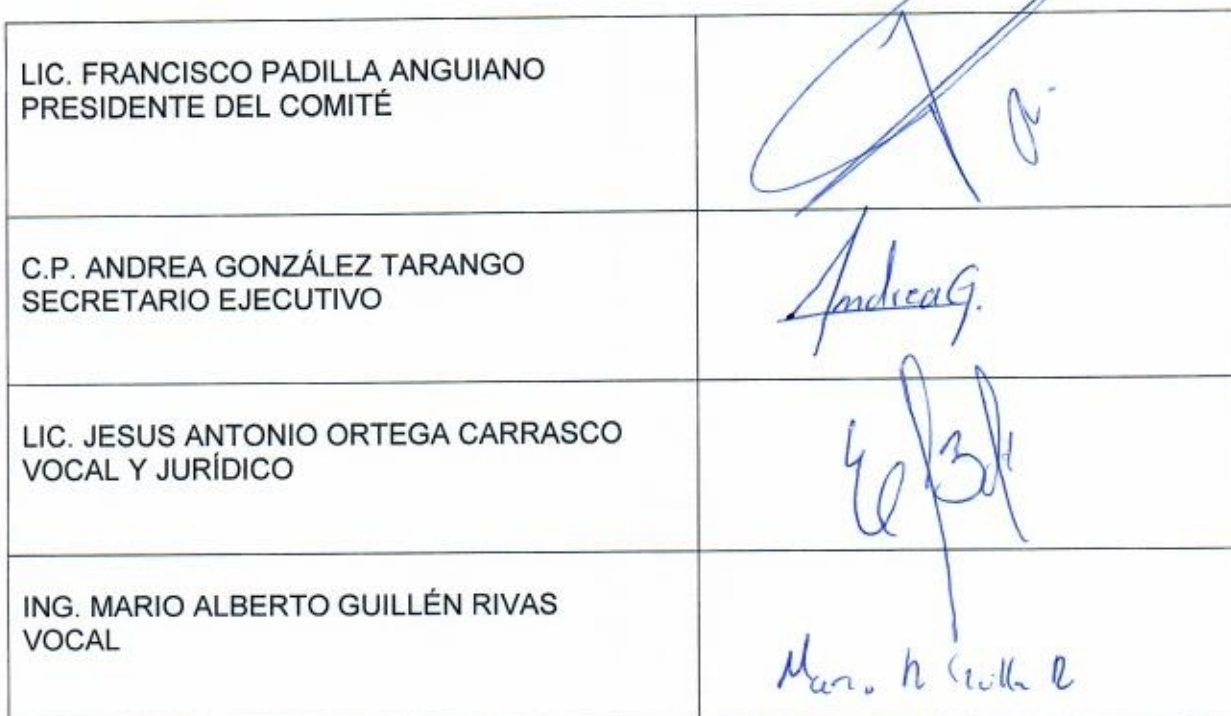 LIC. FRANCISCO PADILLA ANGUIANO
PRESIDENTE DEL COMITÉ
C.P. ANDREA GONZÁLEZ TARANGO
SECRETARIO EJECUTIVO
AndreaG.
LIC. JESUS ANTONIO ORTEGA CARRASCO
VOCAL Y JURÍDICO
ING. MARIO ALBERTO GUILLÉN RIVAS
VOCAL